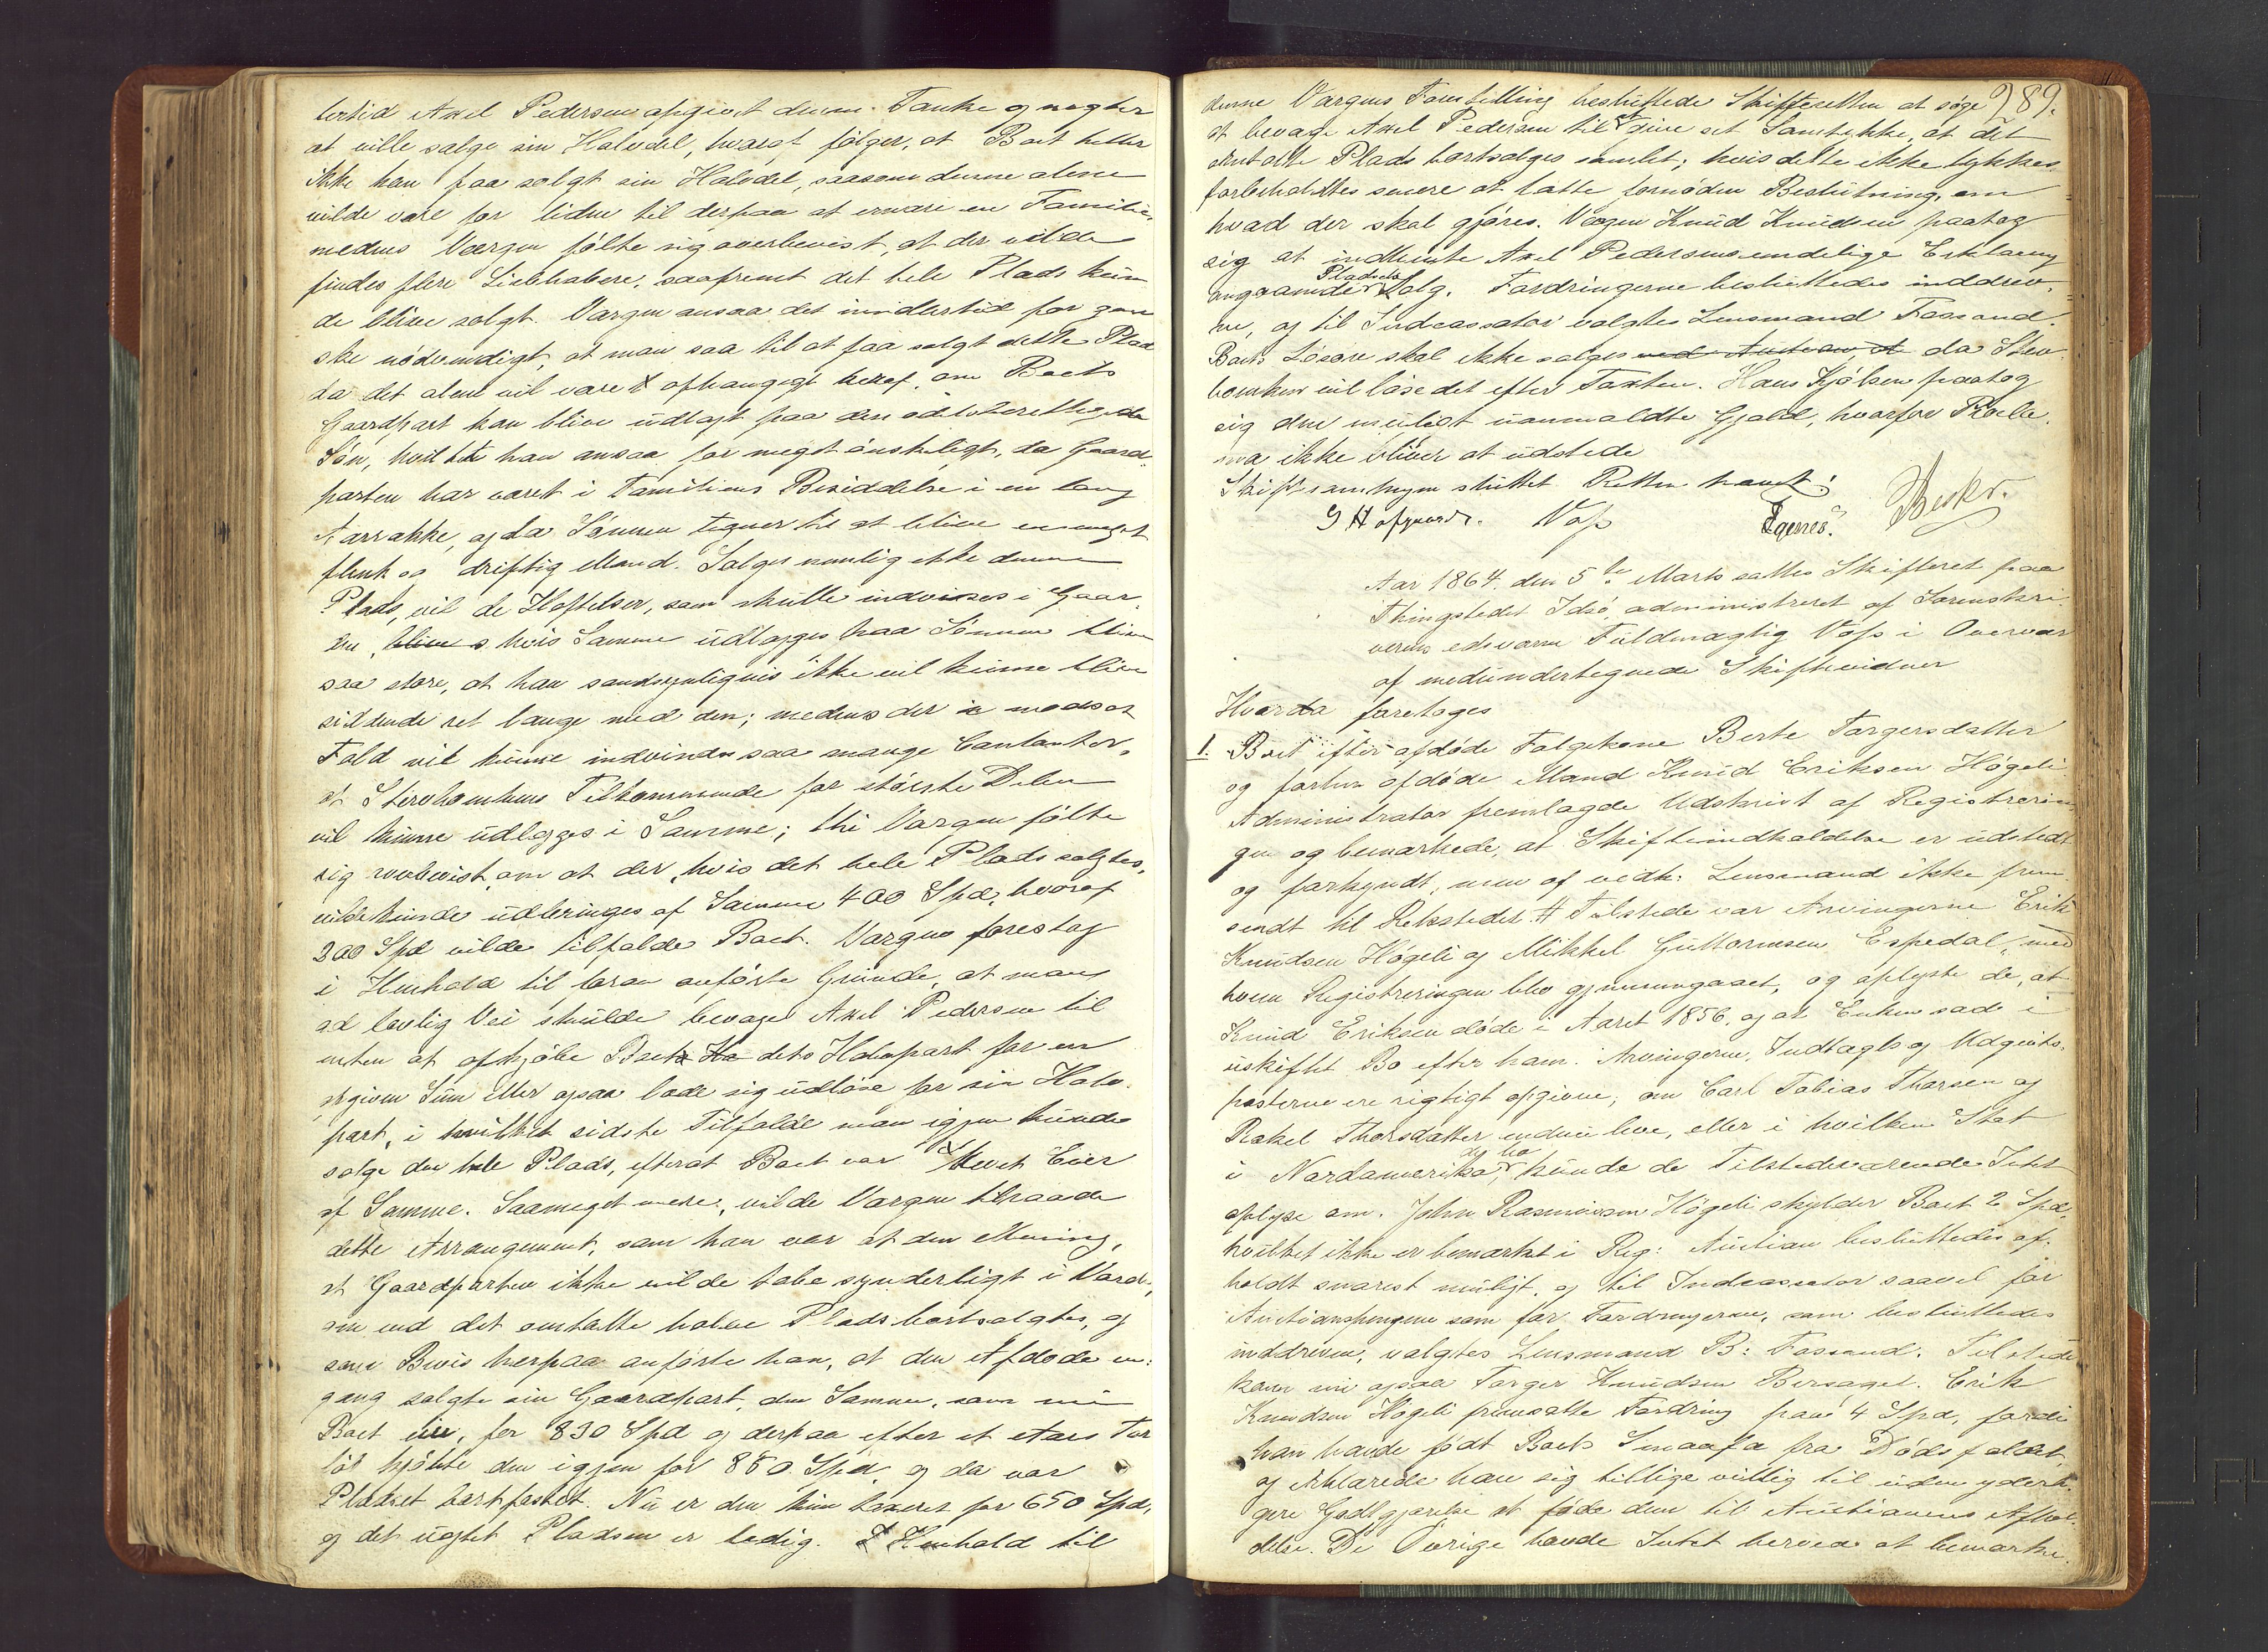 lertid Axel Pedersen opgivet denne Tanke og negter
at ville sælge sin Halvdel, hvoraf følger, at Boet heller
ikke kan faa solgt sin Halvdel, saasom denne alene
vilde være for liden til derpaa at ernære en Familie,
medens Værgen følte sig overbevist, at der vilde
findes flere Liebhabere, saafremt det hele Plads kun-
de blive solgt. Værgen ansaa det imidlertid for gan-
ske nødvendigt, at man saa til at faa solgt dette Plad
da det alene vil være afhængigt heraf, om Boets
Gaardpart kan blive udlagt paa den odelsberettigede
Søn, hvilket han ansaa for meget ønskeligt, da Gaard-
parten har været i Familiens Besiddelse i en lang
Aarrække, og da Sønnen tegner til at blive en meget
flink og driftig Mand. Sælges nemlig ikke denne
Plads, vil de Heftelser, som skulle indvises i Gaar-
den, blive s hvis Samme udlægges paa Sønnen blive
saa store, at han sandsynligvis ikke vil kunne blive
siddende ret længe med den; medens der i modsat
Fald vil kunne indvindes saa mange Contanter,
at Stervboenkens Tilkommende for største Delen
vil kunne udlægges i Samme; thi Værgen følte
sig overbevist om at der, hvis det hele Plads solgtes,
vilde kunde udbringes af Samme 400 Spd, hvoraf
200 Spd vilde tilfalde Boet. Værgen foreslog
i Henhold til foran anførte Grunde, at man
ad lovlig Vei skulde bevæge Axel Pedersen til
enten at afkjøbe Boet Ha dets Halvpart for en
opgiven Sum eller ogsaa lade sig udløse for sin Halv-
part, i hvilket sidste Tilfælde man igjen kunde
sælge den hele Plads, efterat Boet var blevet Eier
af Samme. Saameget mere, vilde Værgen tilraade
dette Arrangement, som han var af den Mening,
at Gaardparten ikke vilde tabe synderligt i Værdi,
om end det omtalte halve Plads bortsolgtes, og
som Bevis herpaa anførte han, at den Afdøde en-
gang solgte sin Gaardpart, den Samme, som nu
Boet eier, for 830 Spd og derpaa efter et Aars For-
løb kjøbte den igjen for 850 Spd, og da var
Pladset bortfæstet. Nu er den kun taxeret for 650 Spd,
og det uagtet Pladsen er ledig. I Henhold til
989.
denne Værgens Fremstilling besluttede Skifteretten at søge
at bevæge Axel Pedersen til at give sit Samtykke, at det
omtalte Plads bortsælges samlet; hvis dette ikke lykkes
forbeholdtes senere at tatte fornøden Beslutning, om
hvad der skal gjøres. Værgen Knud Knudsen paatog
sig at indhente Axel Pedersens endelige Erklæring
angaaende Pladsets Salg. Fordringerne besluttedes inddrev-
ne, og til Indcassator valgtes Lensmand Fossand.
Boets Løsøre skal ikke sælges ved Auction, A da Sterv-
boenken vil løse det efter Taxten. Hans Kjølsen paatog
sig den muligt uanmeldte Gjæld, hvorfor Procla-
ma ikke bliver at udstede
Skiftesamlingen sluttet. Retten hævet:
Voss
Beskr.
Aar 1864. den 5te Marts sattes Skifteret paa
Thingstedet Idsø administreret af Sorenskri-
verens edsvorne Fuldmægtig Voss i Overvær
af medundertegnede Skiftevidner
Hvorda foretoges
1. Boet efter afdøde Følgekone Berte Torgersdatter
og forhen afdøde Mand Knud Eriksen Høgeli.
Administrator fremlagde Udskrivt af Registrerin-
gen og bemærkede, at Skifteindkaldelse er udstedt
og forkyndt, men af vedk: Lensmand ikke frem-
sendt til Retsstedet. Tilstede var Arvingerne Erik
Knudsen Høgeli og Mikkel Guttormsen Espedal, med
hvem Registreringen blev gjennemgaaet, og oplyste de, at
Knud Eriksen døde i Aaret 1856, og at Enken sad i
uskiftet Bo efter ham. Arvingerne, Indtægts og Udgivts-
posterne ere rigtigt opgivne; om Carl Tobias Thorsen og
Rakel Thorsdatter endnu leve, eller i hvilken Stat
i Nordamerika de bo, kunde de Tilstedeværende Intet
oplyse om. John Rasmussen Høgeli skylder Boet 2 Spd,
hvilket ikke er bemærket i Reg: Auction besluttedes af-
holdt snarest muligt, og til Indcassator saavel for
Auctionspengene som for Fordringerne, som besluttedes
inddreven, valgtes Lensmand B: Fossand. Tilstede
kom nu ogsaa Torger Knudsen Bersagel. Erik
Knudsen Høgeli fremsatte Fordring paa 4 Spd, fordi
han havde født Boets Smaafæ fra Dødsfaldet,
og erklærede han sig tillige villig til uden yderli-
gere Godtgjørelse at føde dem til Auctionens Afhol-
delse. De Øvrige havde Intet herved at bemærke.